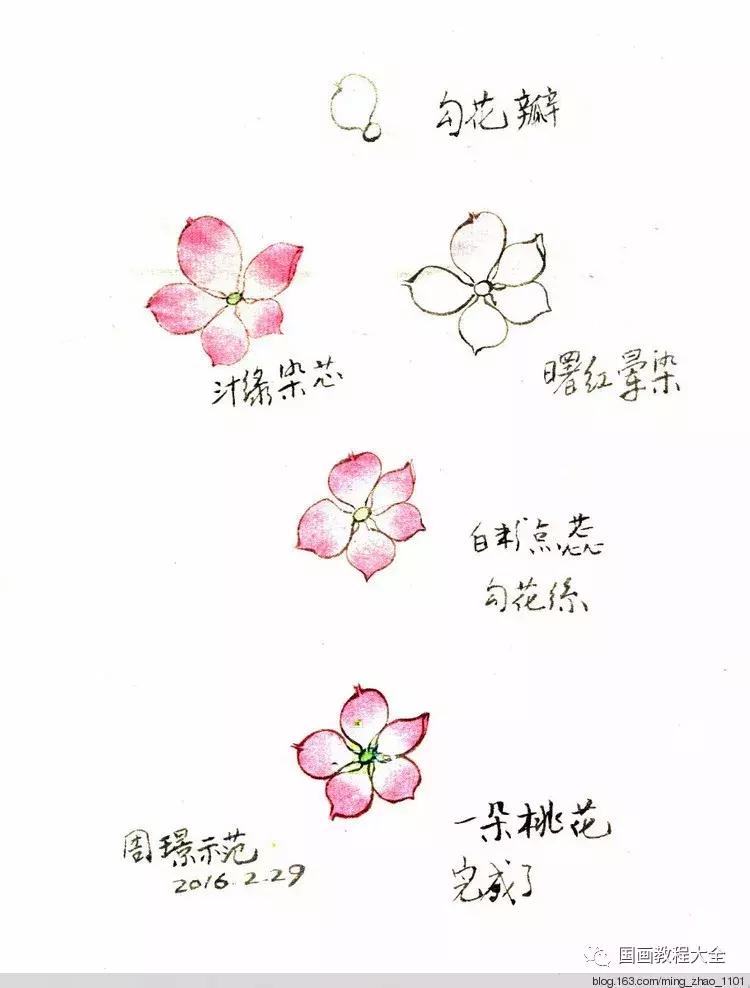 勾花瓣
汁绿染芯
曙红晕染
白粉点蕊
勾花絲
一朵桃花
完成了
周璟示范
2016.2.29
国画教程大全
blog.163.com/ming_zhao_1101